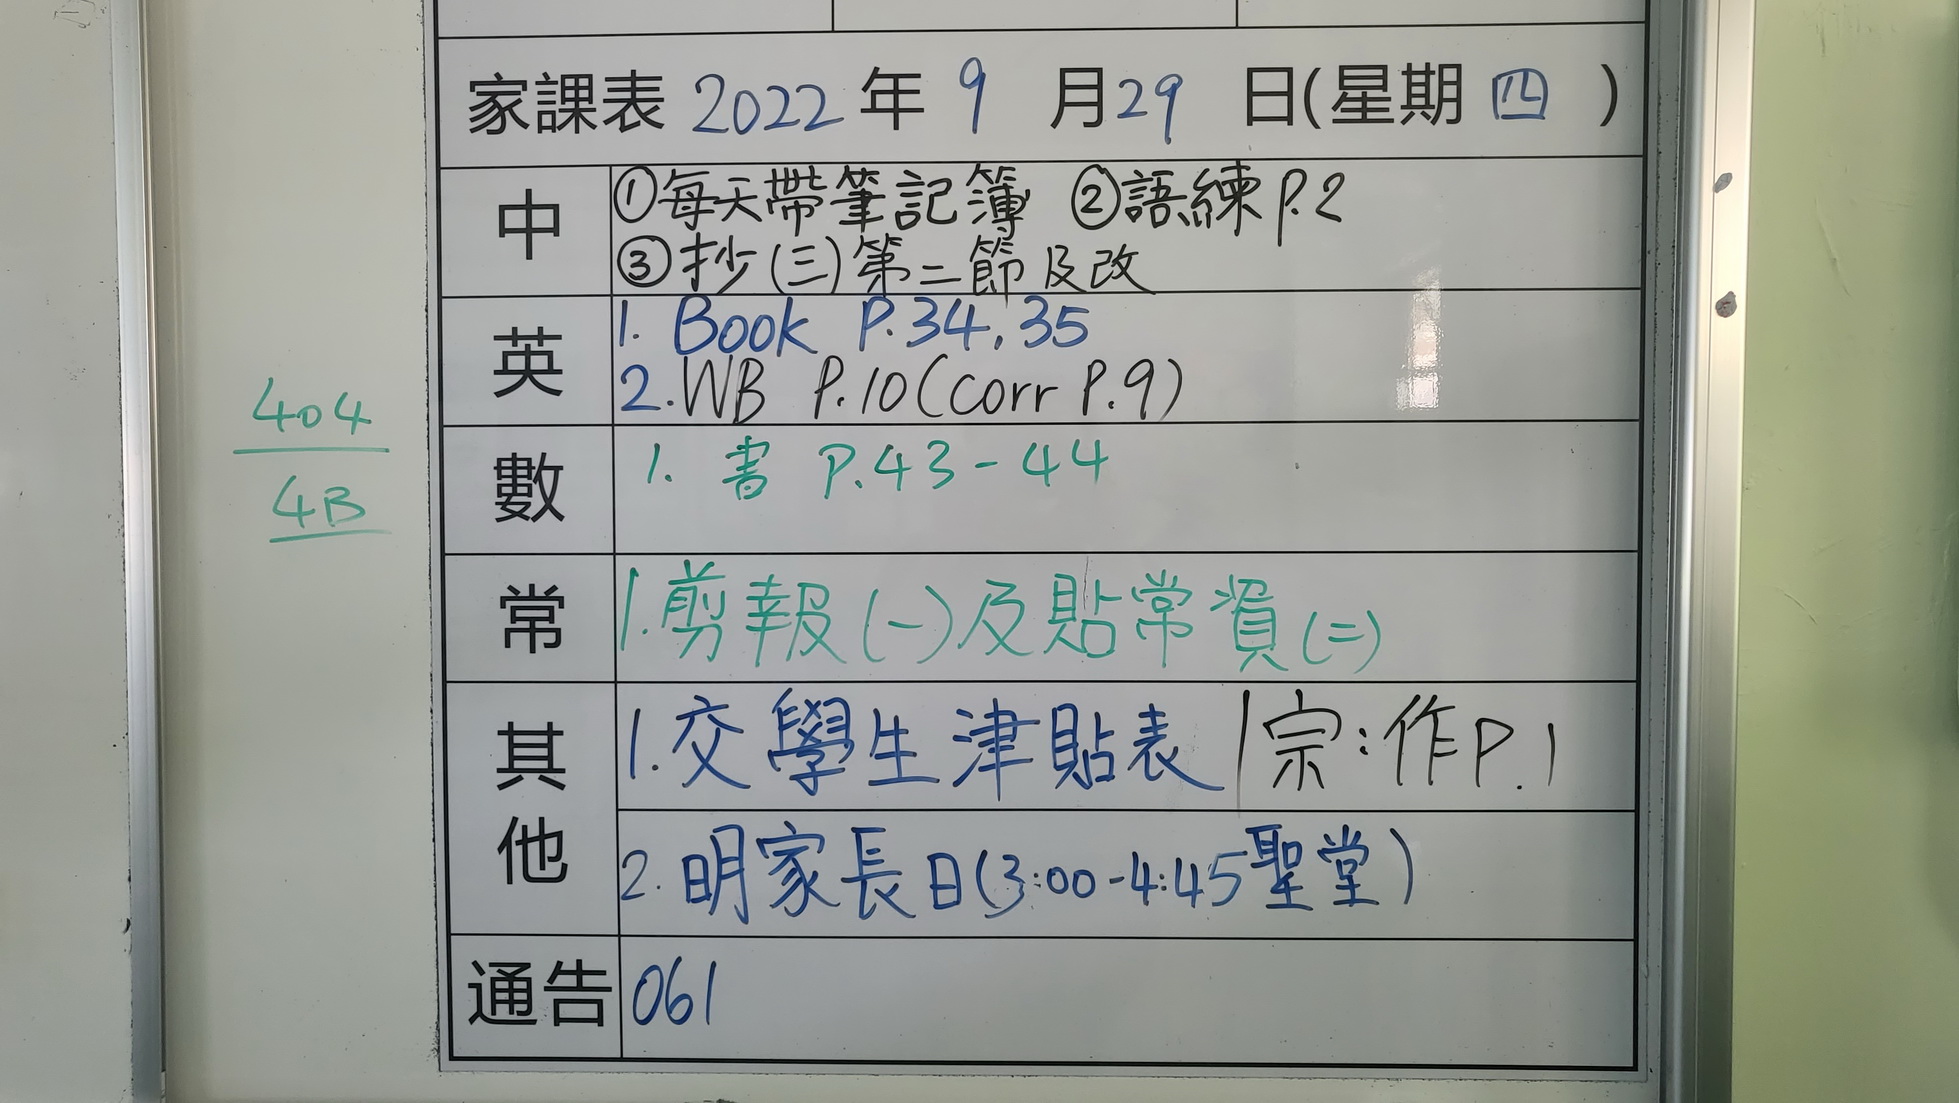 家課表 2022 年 9 月 29 日(星期 四 )
中 ①每天帶筆記簿 ②語練P.2
③抄(三)第二節及改
英 1. Book P.34,35
2. WB P.10(corr P.9)
404
4B
數 1. 書 P.43-44
常 1.剪報(一)及貼常資(二)
其他 1.交學生津貼表 | 宗:作P.1
2.明家長日(3:00-4:45聖堂)
通告 061